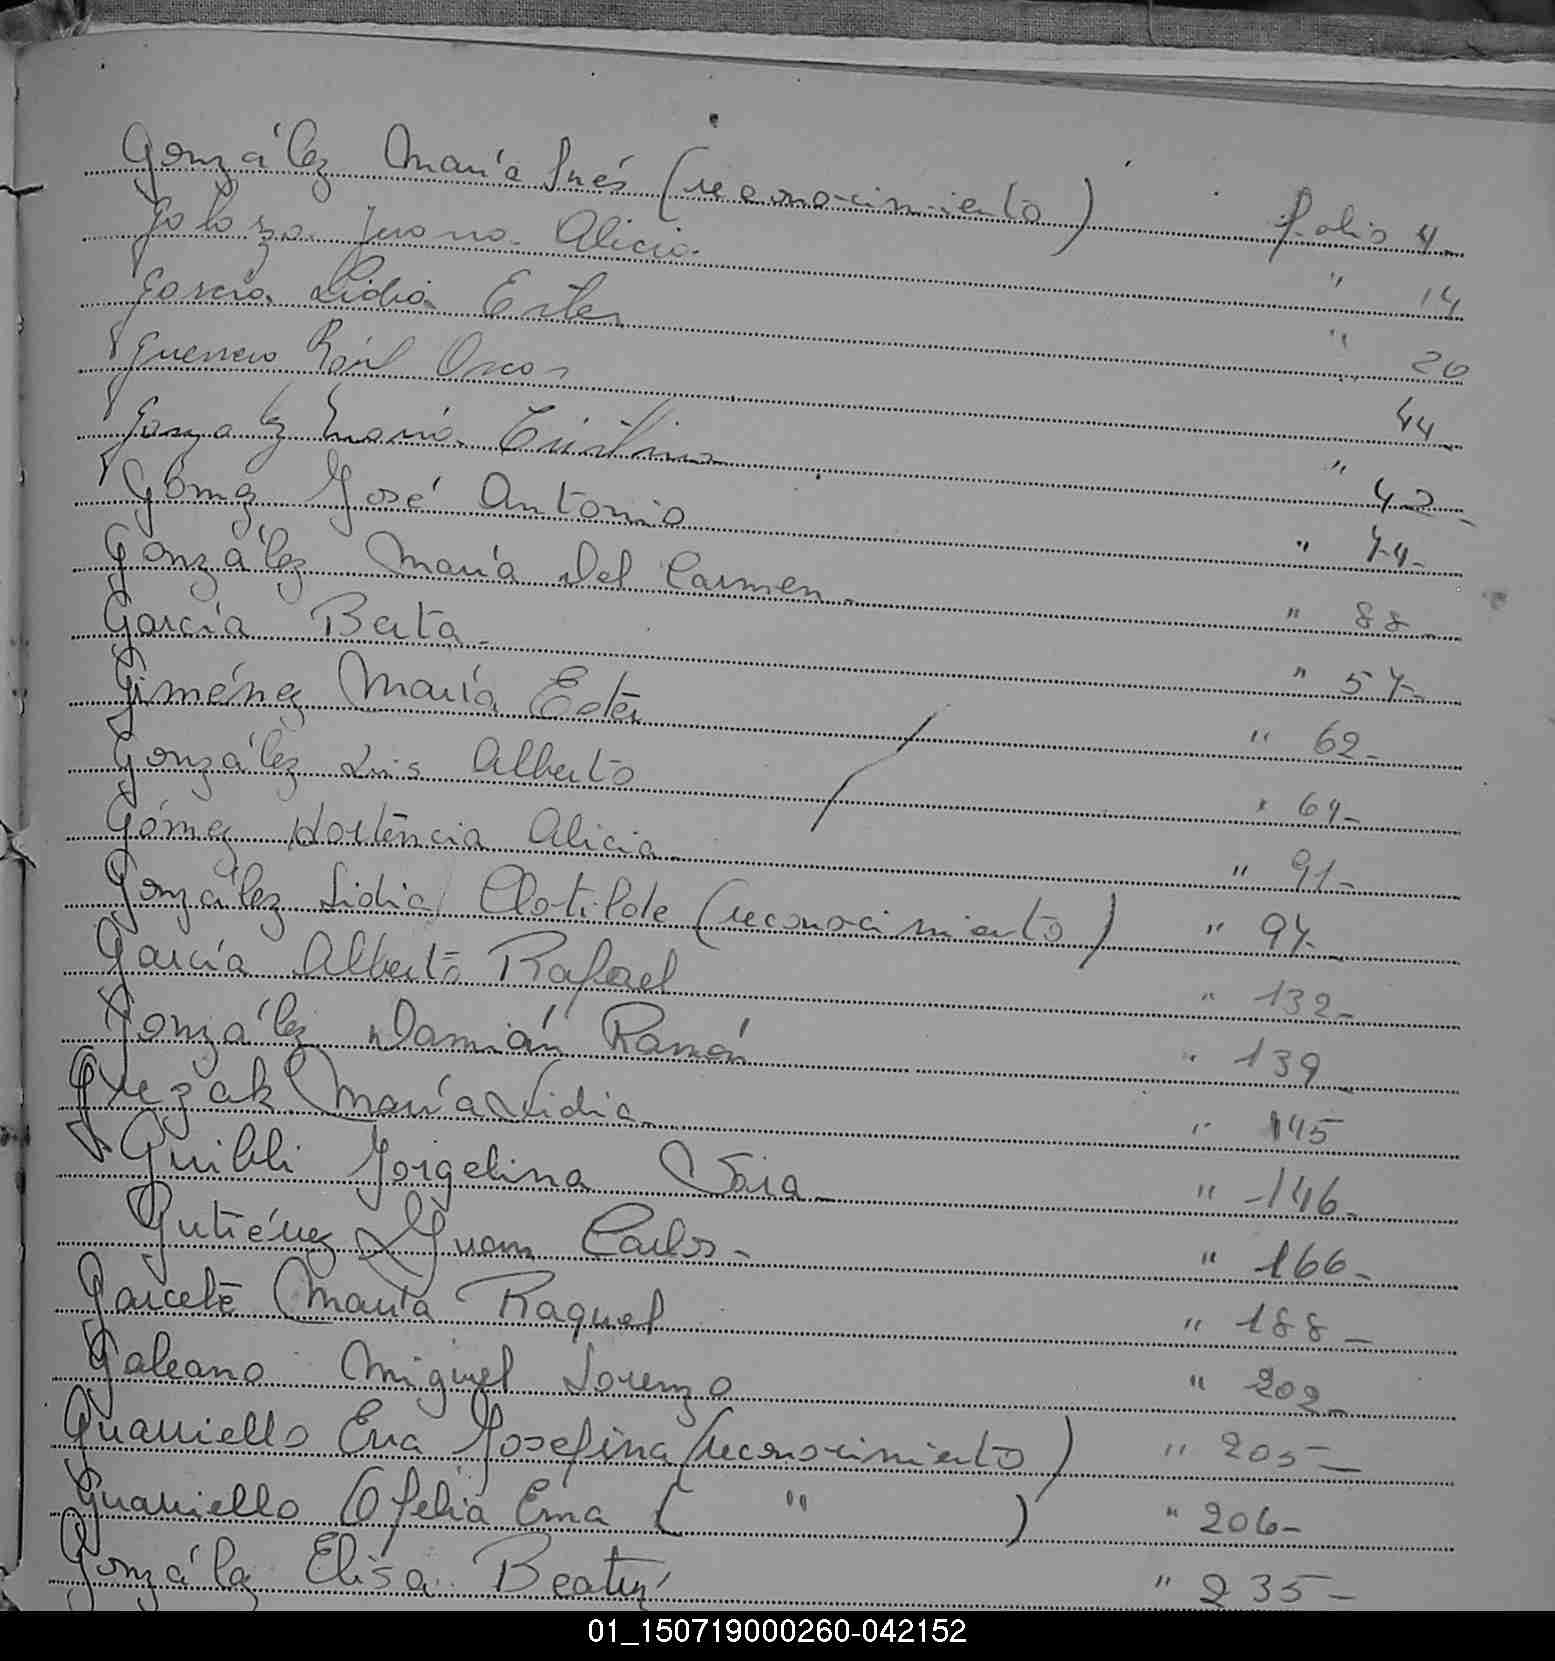 González María Inés (reconocimiento) folio 4-
Galarza Juana Alicia " 14
García Lidia Ester " 26
Guerrero Raúl Oscar 44-
González María Cristina " 42-
Gómez José Antonio " 74-
González María Del Carmen- " 88-
García Berta- " 57-
Giménez María Ester " 62-
González Luis Alberto " 64-
Gómez Hortencia Alicia- " 91-
González Lidia Clotilde (reconocimiento) " 94-
García Alberto Rafael " 132-
González Damián Ramón " 139
Grezak María Lidia- " 145
Guibli Jorgelina " 146-
Gutiérrez Juan Carlos- " 166-
Garcete María Raquel " 188-
Galeano Miguel Lorenzo " 202-
Guarniello Ema Josefina (reconocimiento) " 205-
Guarniello Ofelia Ema ( " ) " 206-
González Elisa Beatriz " 235-
01_150719000260-042152